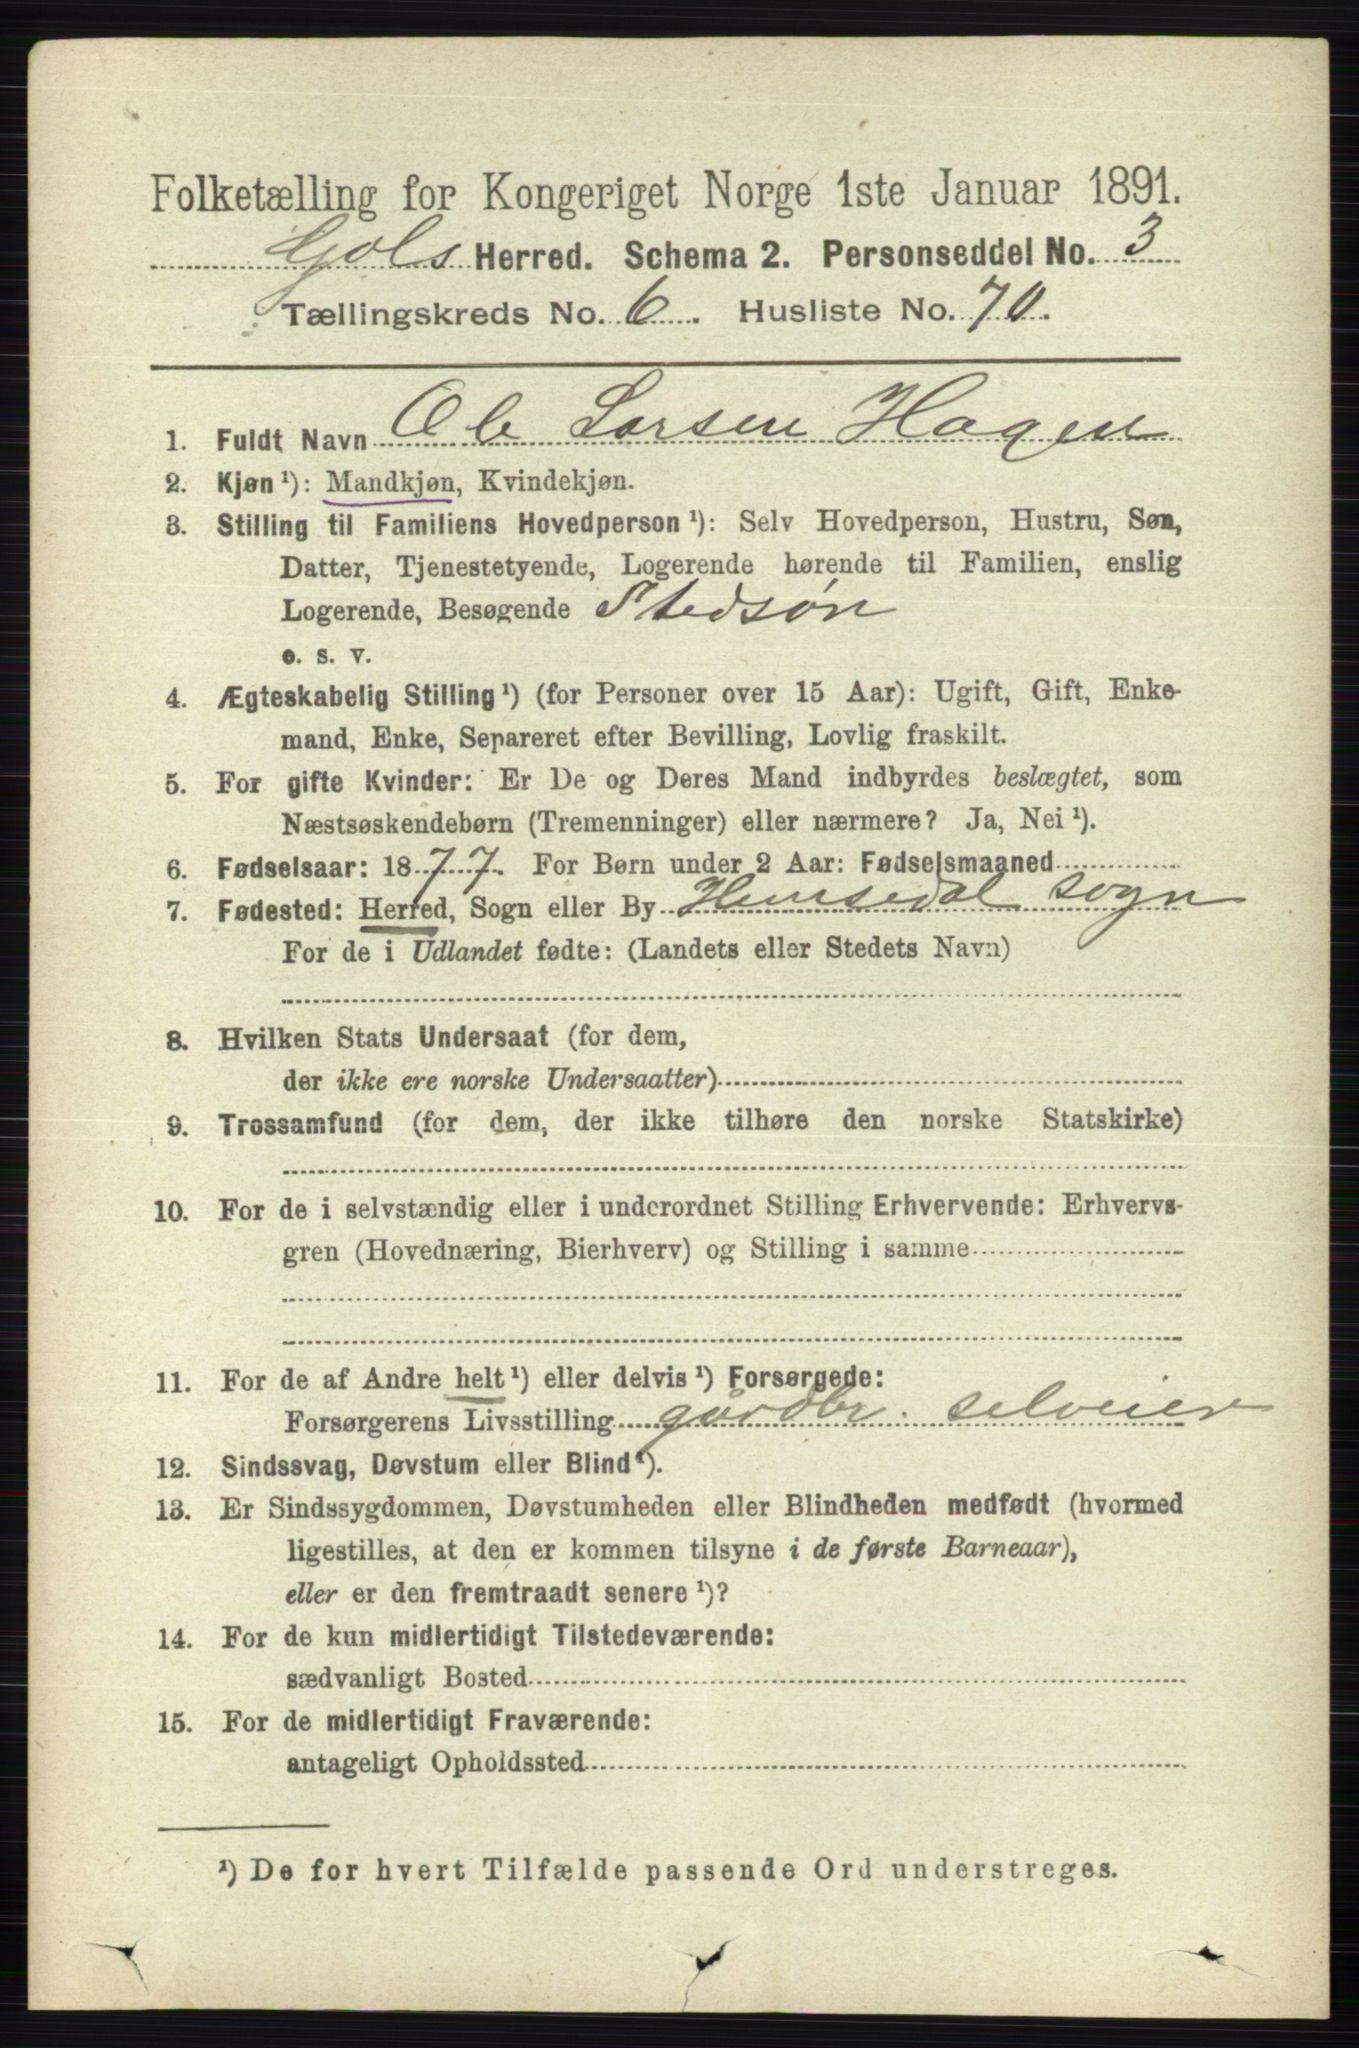 Folketælling for Kongeriget Norge 1ste Januar 1891.
Gols Herred. Schema 2. Personseddel No. 3
Tællingskreds No. 6. Husliste No. 70.
1. Fuldt Navn Ole Larsen Hagen
2. Kjøn ¹): Mandkjøn, Kvindekjøn.
3. Stilling til Familiens Hovedperson ¹): Selv Hovedperson, Hustru, Søn,
Datter, Tjenestetyende, Logerende hørende til Familien, enslig
Logerende, Besøgende Stedsøn
e. s. v.
4. Ægteskabelig Stilling ¹) (for Personer over 15 Aar): Ugift, Gift, Enke-
mand, Enke, Separeret efter Bevilling, Lovlig fraskilt.
5. For gifte Kvinder: Er De og Deres Mand indbyrdes beslægtet, som
Næstsøskendebørn (Tremenninger) eller nærmere? Ja, Nei ¹).
6. Fødselsaar: 1877. For Børn under 2 Aar: Fødselsmaaned
7. Fødested: Herred, Sogn eller By Hemsedal sogn
For de i Udlandet fødte: (Landets eller Stedets Navn)
8. Hvilken Stats Undersaat (for dem,
der ikke ere norske Undersaatter)
9. Trossamfund (for dem, der ikke tilhøre den norske Statskirke)
10. For de i selvstændig eller i underordnet Stilling Erhvervende: Erhvervs-
gren (Hovednæring, Bierhverv) og Stilling i samme
11. For de af Andre helt ¹) eller delvis ¹) Forsørgede:
Forsørgerens Livsstilling gårdbr. selveier
12. Sindssvag, Døvstum eller Blind ¹).
13. Er Sindssygdommen, Døvstumheden eller Blindheden medfødt (hvormed
ligestilles, at den er kommen tilsyne i de første Barneaar),
eller er den fremtraadt senere ¹)?
14. For de kun midlertidigt Tilstedeværende:
sædvanligt Bosted
15. For de midlertidigt Fraværende:
antageligt Opholdssted
¹) De for hvert Tilfælde passende Ord understreges.